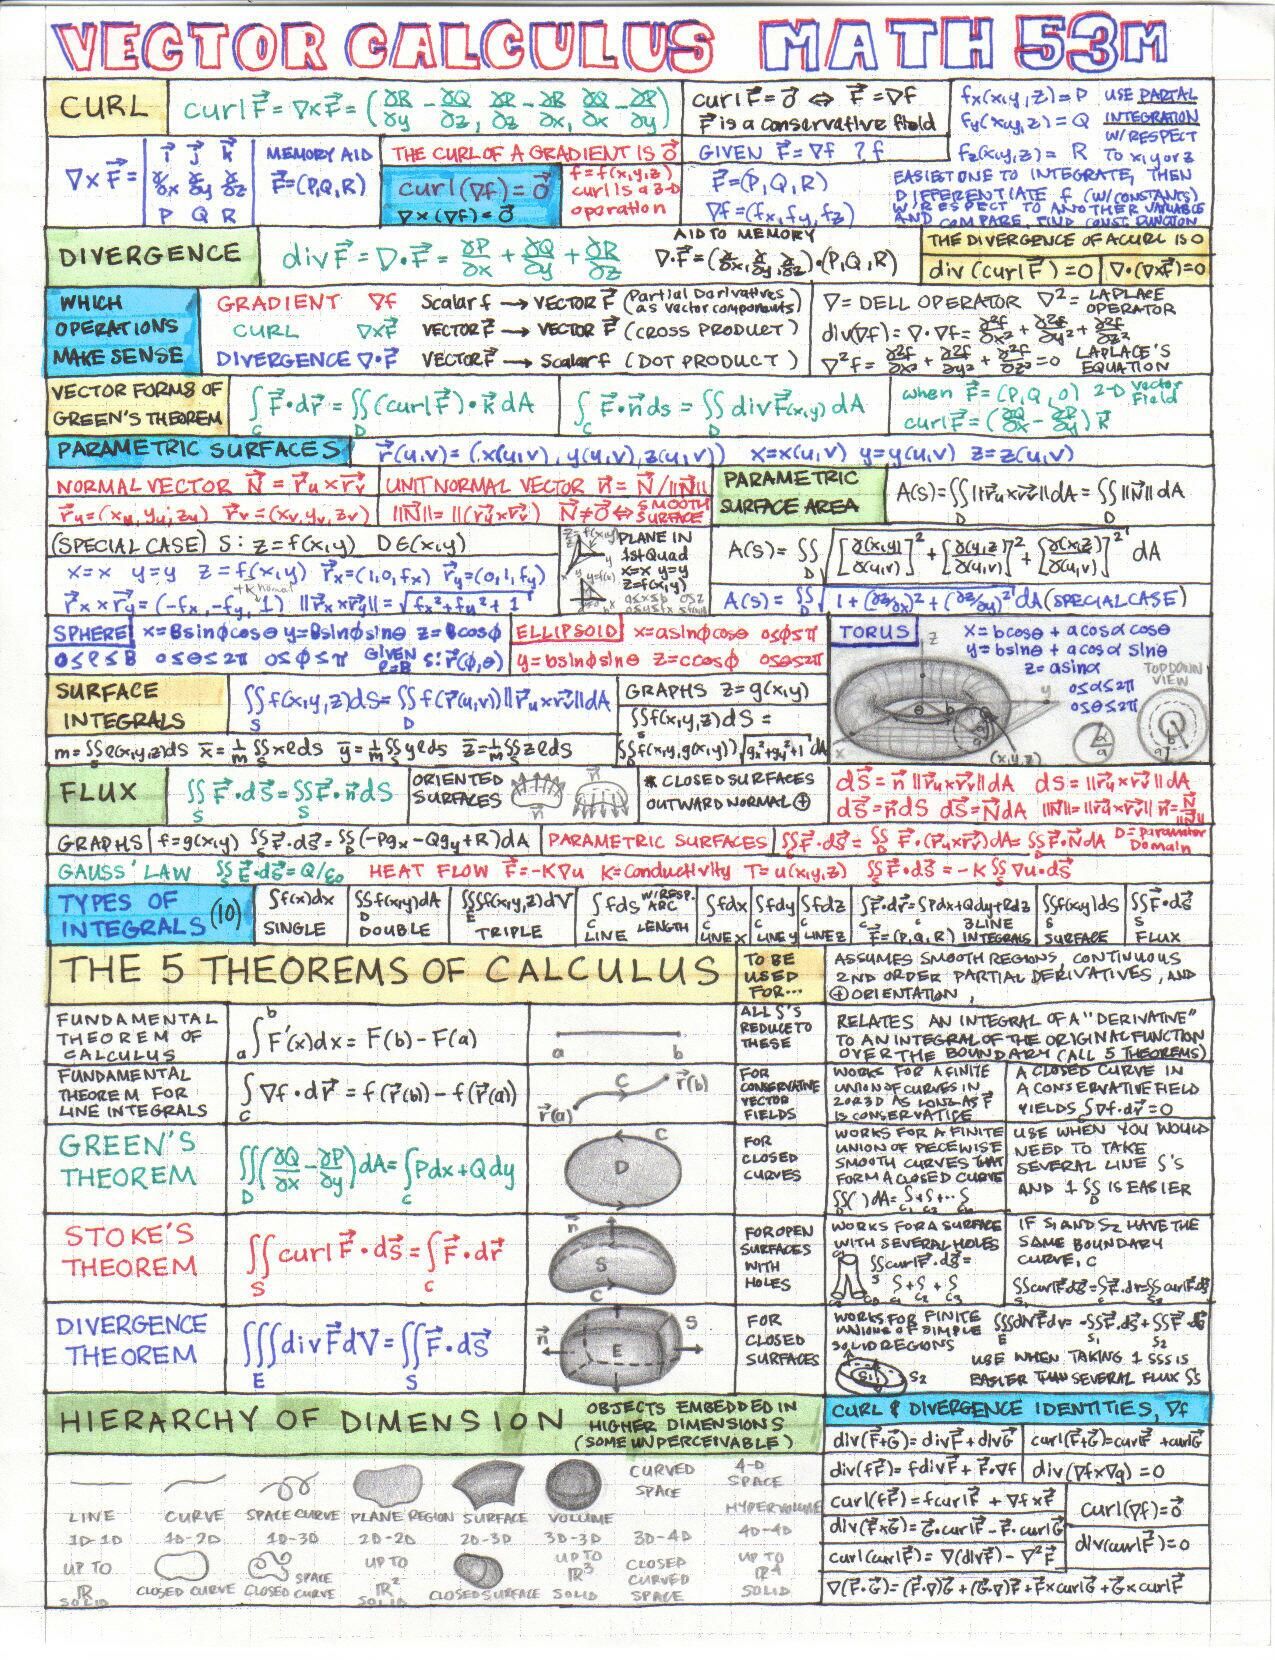 VECTOR CALCULUS MATH 53M
CURL
curl F⃗ = ∇×F⃗ = (∂R/∂y − ∂Q/∂z, ∂P/∂z − ∂R/∂x, ∂Q/∂x − ∂P/∂y)
curl F⃗ = 0⃗ ⇔ F⃗ = ∇f
F⃗ is a conservative field
fx(x,y,z) = P USE PARTIAL
fy(x,y,z) = Q INTEGRATION
W/RESPECT
fz(x,y,z) = R TO x, y or z
∇×F⃗ = | i⃗ j⃗ k⃗ |
| ∂/∂x ∂/∂y ∂/∂z |
| P Q R |
MEMORY AID
F⃗=(P,Q,R)
THE CURL OF A GRADIENT IS 0⃗
curl(∇f) = 0⃗
∇×(∇f) = 0⃗
f = f(x,y,z)
curl is a 3-D
operation
GIVEN F⃗=∇f ?f
F⃗=(P,Q,R)
∇f=(fx, fy, fz)
EASIEST ONE TO INTEGRATE, THEN
DIFFERENTIATE f (W/CONSTANTS)
W/RESPECT TO ANOTHER VARIABLE
AND COMPARE, FIND CONST. FUNCTION
DIVERGENCE
div F⃗ = ∇·F⃗ = ∂P/∂x + ∂Q/∂y + ∂R/∂z
AID TO MEMORY
∇·F⃗=(∂/∂x, ∂/∂y, ∂/∂z)·(P,Q,R)
THE DIVERGENCE OF A CURL IS 0
div(curl F⃗)=0
∇·(∇×F⃗)=0
WHICH
OPERATIONS
MAKE SENSE
GRADIENT ∇f Scalar f → VECTOR F⃗ (Partial Derivatives as vector components)
CURL ∇×F⃗ VECTOR F⃗ → VECTOR F⃗ (CROSS PRODUCT)
DIVERGENCE ∇·F⃗ VECTOR F⃗ → Scalar f (DOT PRODUCT)
∇ = DELL OPERATOR ∇² = LAPLACE OPERATOR
div(∇f) = ∇·∇f = ∂²f/∂x² + ∂²f/∂y² + ∂²f/∂z²
∇²f = ∂²f/∂x² + ∂²f/∂y² + ∂²f/∂z² = 0 LAPLACE'S EQUATION
VECTOR FORMS OF
GREEN'S THEOREM
∫C F⃗·dr⃗ = ∬D (curl F⃗)·k⃗ dA
∫C F⃗·n⃗ ds = ∬D div F⃗(x,y) dA
when F⃗=(P,Q,0) 2-D Vector Field
curl F⃗=(∂Q/∂x − ∂P/∂y)k⃗
PARAMETRIC SURFACES
r⃗(u,v)=(x(u,v), y(u,v), z(u,v)) x=x(u,v) y=y(u,v) z=z(u,v)
NORMAL VECTOR N⃗ = r⃗u×r⃗v
UNIT NORMAL VECTOR n⃗ = N⃗/||N⃗||
r⃗u=(xu, yu, zu) r⃗v=(xv, yv, zv)
||N⃗|| = ||(r⃗u×r⃗v)|| N⃗≠0⃗ ⇔ SMOOTH SURFACE
PARAMETRIC
SURFACE AREA
A(S) = ∬D ||r⃗u×r⃗v|| dA = ∬D ||N⃗|| dA
(SPECIAL CASE) S: z=f(x,y) D∈(x,y)
x=x y=y z=f(x,y) r⃗x=(1,0,fx) r⃗y=(0,1,fy)
r⃗x×r⃗y = (−fx, −fy, 1) ||r⃗x×r⃗y|| = √(fx²+fy²+1)
PLANE IN
1st Quad
x=x y=y
z=f(x,y)
A(S) = ∬D √([∂(x,y)/∂(u,v)]² + [∂(y,z)/∂(u,v)]² + [∂(x,z)/∂(u,v)]²) dA
A(S) = ∬D √(1+(∂z/∂x)²+(∂z/∂y)²) dA (SPECIAL CASE)
SPHERE x=Bsinϕcosθ y=Bsinϕsinθ z=Bcosϕ
0≤ρ≤B 0≤θ≤2π 0≤ϕ≤π GIVEN ρ=B S: r⃗(ϕ,θ)
ELLIPSOID x=asinϕcosθ 0≤ϕ≤π
y=bsinϕsinθ z=ccosϕ 0≤θ≤2π
TORUS
x=bcosθ + acosαcosθ
y=bsinθ + acosα sinθ
z=asinα
0≤α≤2π
0≤θ≤2π
TOP DOWN
VIEW
(x,y,z)
SURFACE
INTEGRALS
∬S f(x,y,z)dS = ∬D f(r⃗(u,v))||r⃗u×r⃗v||dA
GRAPHS z=g(x,y)
∬S f(x,y,z)dS =
∬D f(x,y,g(x,y))√(gx²+gy²+1) dA
m=∬S ρ(x,y,z)dS x̄=1/m ∬S xρdS ȳ=1/m ∬S yρdS z̄=1/m ∬S zρdS
FLUX
∬S F⃗·dS⃗ = ∬S F⃗·n⃗ dS
ORIENTED
SURFACES
* CLOSED SURFACES
OUTWARD NORMAL ⊕
dS⃗ = n⃗ ||r⃗u×r⃗v||dA dS = ||r⃗u×r⃗v||dA
dS⃗=n⃗dS dS⃗=N⃗dA ||N⃗||=||r⃗u×r⃗v|| n⃗=N⃗/||N⃗||
GRAPHS f=g(x,y) ∬S F⃗·dS⃗ = ∬D (−Pgx − Qgy + R)dA
PARAMETRIC SURFACES ∬S F⃗·dS⃗ = ∬D F⃗·(r⃗u×r⃗v)dA = ∬D F⃗·N⃗dA D=parameter Domain
GAUSS' LAW ∬S E⃗·dS⃗ = Q/ε0 HEAT FLOW F⃗=−K∇u K=conductivity T=u(x,y,z) ∬S F⃗·dS⃗ = −K∬S ∇u·dS⃗
TYPES OF
INTEGRALS (10)
∫f(x)dx SINGLE
∬D f(x,y)dA DOUBLE
∭E f(x,y,z)dV TRIPLE
∫C fds W/RESP. ARC LENGTH LINE
∫C fdx LINE X
∫C fdy LINE Y
∫C fdz LINE Z
∫C F⃗·dr⃗=∫C Pdx+Qdy+Rdz F⃗=(P,Q,R) 3 LINE INTEGRALS
∬S f(x,y)dS SURFACE
∬S F⃗·dS⃗ FLUX
THE 5 THEOREMS OF CALCULUS
TO BE
USED
FOR...
ASSUMES SMOOTH REGIONS, CONTINUOUS
2ND ORDER PARTIAL DERIVATIVES, AND
⊕ ORIENTATION,
FUNDAMENTAL
THEOREM OF
CALCULUS
∫ab F'(x)dx = F(b) − F(a)
a b
ALL ∫'S
REDUCE TO
THESE
RELATES AN INTEGRAL OF A "DERIVATIVE"
TO AN INTEGRAL OF THE ORIGINAL FUNCTION
OVER THE BOUNDARY (ALL 5 THEOREMS)
FUNDAMENTAL
THEOREM FOR
LINE INTEGRALS
∫C ∇f·dr⃗ = f(r⃗(b)) − f(r⃗(a))
r⃗(a) C r⃗(b)
FOR
CONSERVATIVE
VECTOR
FIELDS
WORKS FOR A FINITE
UNION OF CURVES IN
2 OR 3D AS LONG AS F⃗
IS CONSERVATIVE
A CLOSED CURVE IN
A CONSERVATIVE FIELD
YIELDS ∫∇f·dr⃗=0
GREEN'S
THEOREM
∬D (∂Q/∂x − ∂P/∂y)dA = ∫C Pdx+Qdy
D C
FOR
CLOSED
CURVES
WORKS FOR A FINITE
UNION OF PIECEWISE
SMOOTH CURVES THAT
FORM A CLOSED CURVE
∬D ( )dA = ∫C1 + ∫C2 + ... ∫Cn
USE WHEN YOU WOULD
NEED TO TAKE
SEVERAL LINE ∫'S
AND 1 ∬D IS EASIER
STOKE'S
THEOREM
∬S curl F⃗·dS⃗ = ∫C F⃗·dr⃗
n⃗ S C
FOR OPEN
SURFACES
WITH
HOLES
WORKS FOR A SURFACE
WITH SEVERAL HOLES
∬S curl F⃗·dS⃗ =
∫C1 + ∫C2 + ∫C3
IF S1 AND S2 HAVE THE
SAME BOUNDARY
CURVE, C
∬S1 curl F⃗·dS⃗ = ∫C F⃗·dr⃗ = ∬S2 curl F⃗·dS⃗
DIVERGENCE
THEOREM
∭E div F⃗ dV = ∬S F⃗·dS⃗
n⃗ E S
FOR
CLOSED
SURFACES
WORKS FOR FINITE
UNIONS OF SIMPLE
SOLID REGIONS
S1 S2
∭E div F⃗ dV = −∬S1 F⃗·dS⃗ + ∬S2 F⃗·dS⃗
USE WHEN TAKING 1 ∭ IS
EASIER THAN SEVERAL FLUX ∬'S
HIERARCHY OF DIMENSION
OBJECTS EMBEDDED IN
HIGHER DIMENSIONS
(SOME UNPERCEIVABLE)
CURVED SPACE
4-D SPACE
LINE CURVE SPACE CURVE PLANE REGION SURFACE VOLUME HYPERVOLUME
1D-1D 1D-2D 1D-3D 2D-2D 2D-3D 3D-3D 3D-4D 4D-4D
UP TO ℝ SOLID
CLOSED CURVE
SPACE CLOSED CURVE
UP TO ℝ² SOLID
CLOSED SURFACE
UP TO ℝ³ SOLID
CLOSED CURVED SPACE
UP TO ℝ⁴ SOLID
CURL & DIVERGENCE IDENTITIES, ∇f
div(F⃗+G⃗)=divF⃗+divG⃗ curl(F⃗+G⃗)=curlF⃗+curlG⃗
div(fF⃗)=fdivF⃗+F⃗·∇f div(∇f×∇g)=0
curl(fF⃗)=fcurlF⃗ + ∇f×F⃗
curl(∇f)=0⃗
div(F⃗×G⃗)=G⃗·curlF⃗ − F⃗·curlG⃗
div(curlF⃗)=0
curl(curlF⃗)=∇(divF⃗) − ∇²F⃗
∇(F⃗·G⃗)=(F⃗·∇)G⃗+(G⃗·∇)F⃗+F⃗×curlG⃗+G⃗×curlF⃗